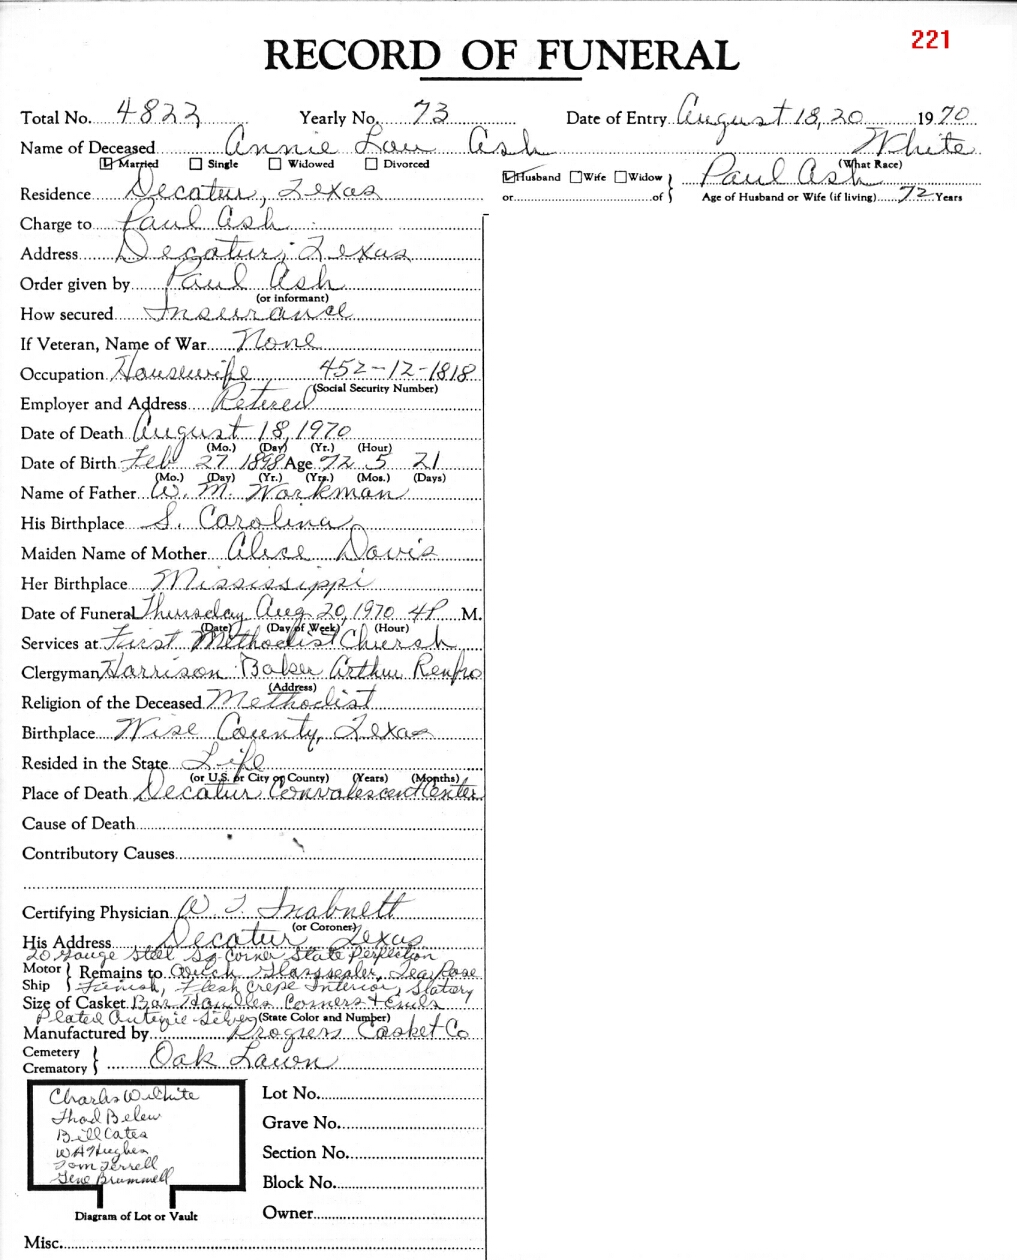 221
RECORD OF FUNERAL
Total No. 4822 Yearly No. 73 Date of Entry August 18, 20 1970
Name of Deceased Annie Lou Ash White
☑ Married ☐ Single ☐ Widowed ☐ Divorced (What Race)
☑ Husband ☐ Wife ☐ Widow } Paul Ash
Residence Decatur, Texas or of Age of Husband or Wife (if living) 72 Years
Charge to Paul Ash
Address Decatur, Texas
Order given by Paul Ash
(or informant)
How secured Insurance
If Veteran, Name of War None
Occupation Housewife 452-12-1818
(Social Security Number)
Employer and Address Retired
Date of Death August 18, 1970
(Mo.) (Day) (Yr.) (Hour)
Date of Birth Feb 27 1898 Age 72 5 21
(Mo.) (Day) (Yr.) (Yrs.) (Mos.) (Days)
Name of Father W. M. Workman
His Birthplace S. Carolina
Maiden Name of Mother Alice Davis
Her Birthplace Mississippi
Date of Funeral Thursday Aug 20, 1970 4P M.
(Date) (Day of Week) (Hour)
Services at First Methodist Church
Clergyman Harrison Baker Arthur Renfro
(Address)
Religion of the Deceased Methodist
Birthplace Wise County, Texas
Resided in the State Life
(or U.S. or City or County) (Years) (Months)
Place of Death Decatur Convalescent Center
Cause of Death
Contributory Causes
Certifying Physician W T Inabnett
(or Coroner)
His Address Decatur Texas
20 Gauge Steel Sq Corner State Perfection
Motor } Remains to Glasssealer Tea Rose
Ship Finish, Flesh Crepe Interior,
Size of Casket Bar Handles Corners + Ends
Plated Antique Silver (State Color and Number)
Manufactured by Progress Casket Co
Cemetery } Oak Lawn
Crematory
Charles Wilhite
Thad Belew
Bill Cates
W A Hughes
Tom Terrell
Gene Brummell
Lot No.
Grave No.
Section No.
Block No.
Owner
Diagram of Lot or Vault
Misc.